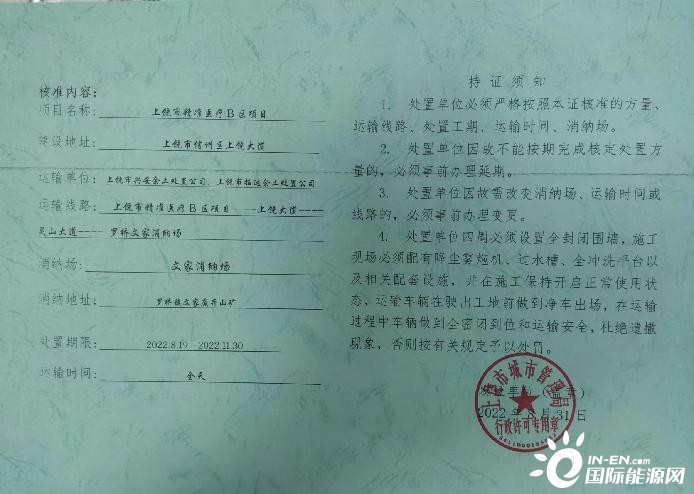 核准内容：
项目名称： 上饶市精准医疗B区项目
建设地址： 上饶市信州区上饶大道
运输单位： 上饶市兴安余土处置公司、上饶市拓运余土处置公司
运输线路： 上饶市精准医疗B区项目 ----上饶大道-----
灵山大道---- 罗桥文家消纳场
消纳场： 文家消纳场
消纳地址： 罗桥镇文家废弃山矿
处置期限： 2022.8.19 -2022.11.30
运输时间: 全天
持证须知
1. 处置单位必须严格按照本证核准的方量、
运输线路、处置工期、运输时间、消纳场。
2. 处置单位因故不能按期完成核定处置方
量的，必须事前办理延期。
3. 处置单位因故需改变消纳场、运输时间或
线路的，必须事前办理变更。
4. 处置单位四周必须设置全封闭围墙，施工
现场必须配有降尘雾炮机、过水槽、全冲洗平台以
及相关配套设施，并在施工保持开启正常使用状
态，运输车辆在驶出工地前做到净车出场，在运输
过程中车辆做到全密闭到位和运输安全，杜绝遗撒
现象，否则按有关规定予以处罚。
发证单位（盖章）
2022年8月31日
上饶市城市管理局
行政许可专用章
IN-EN.com
国际能源网